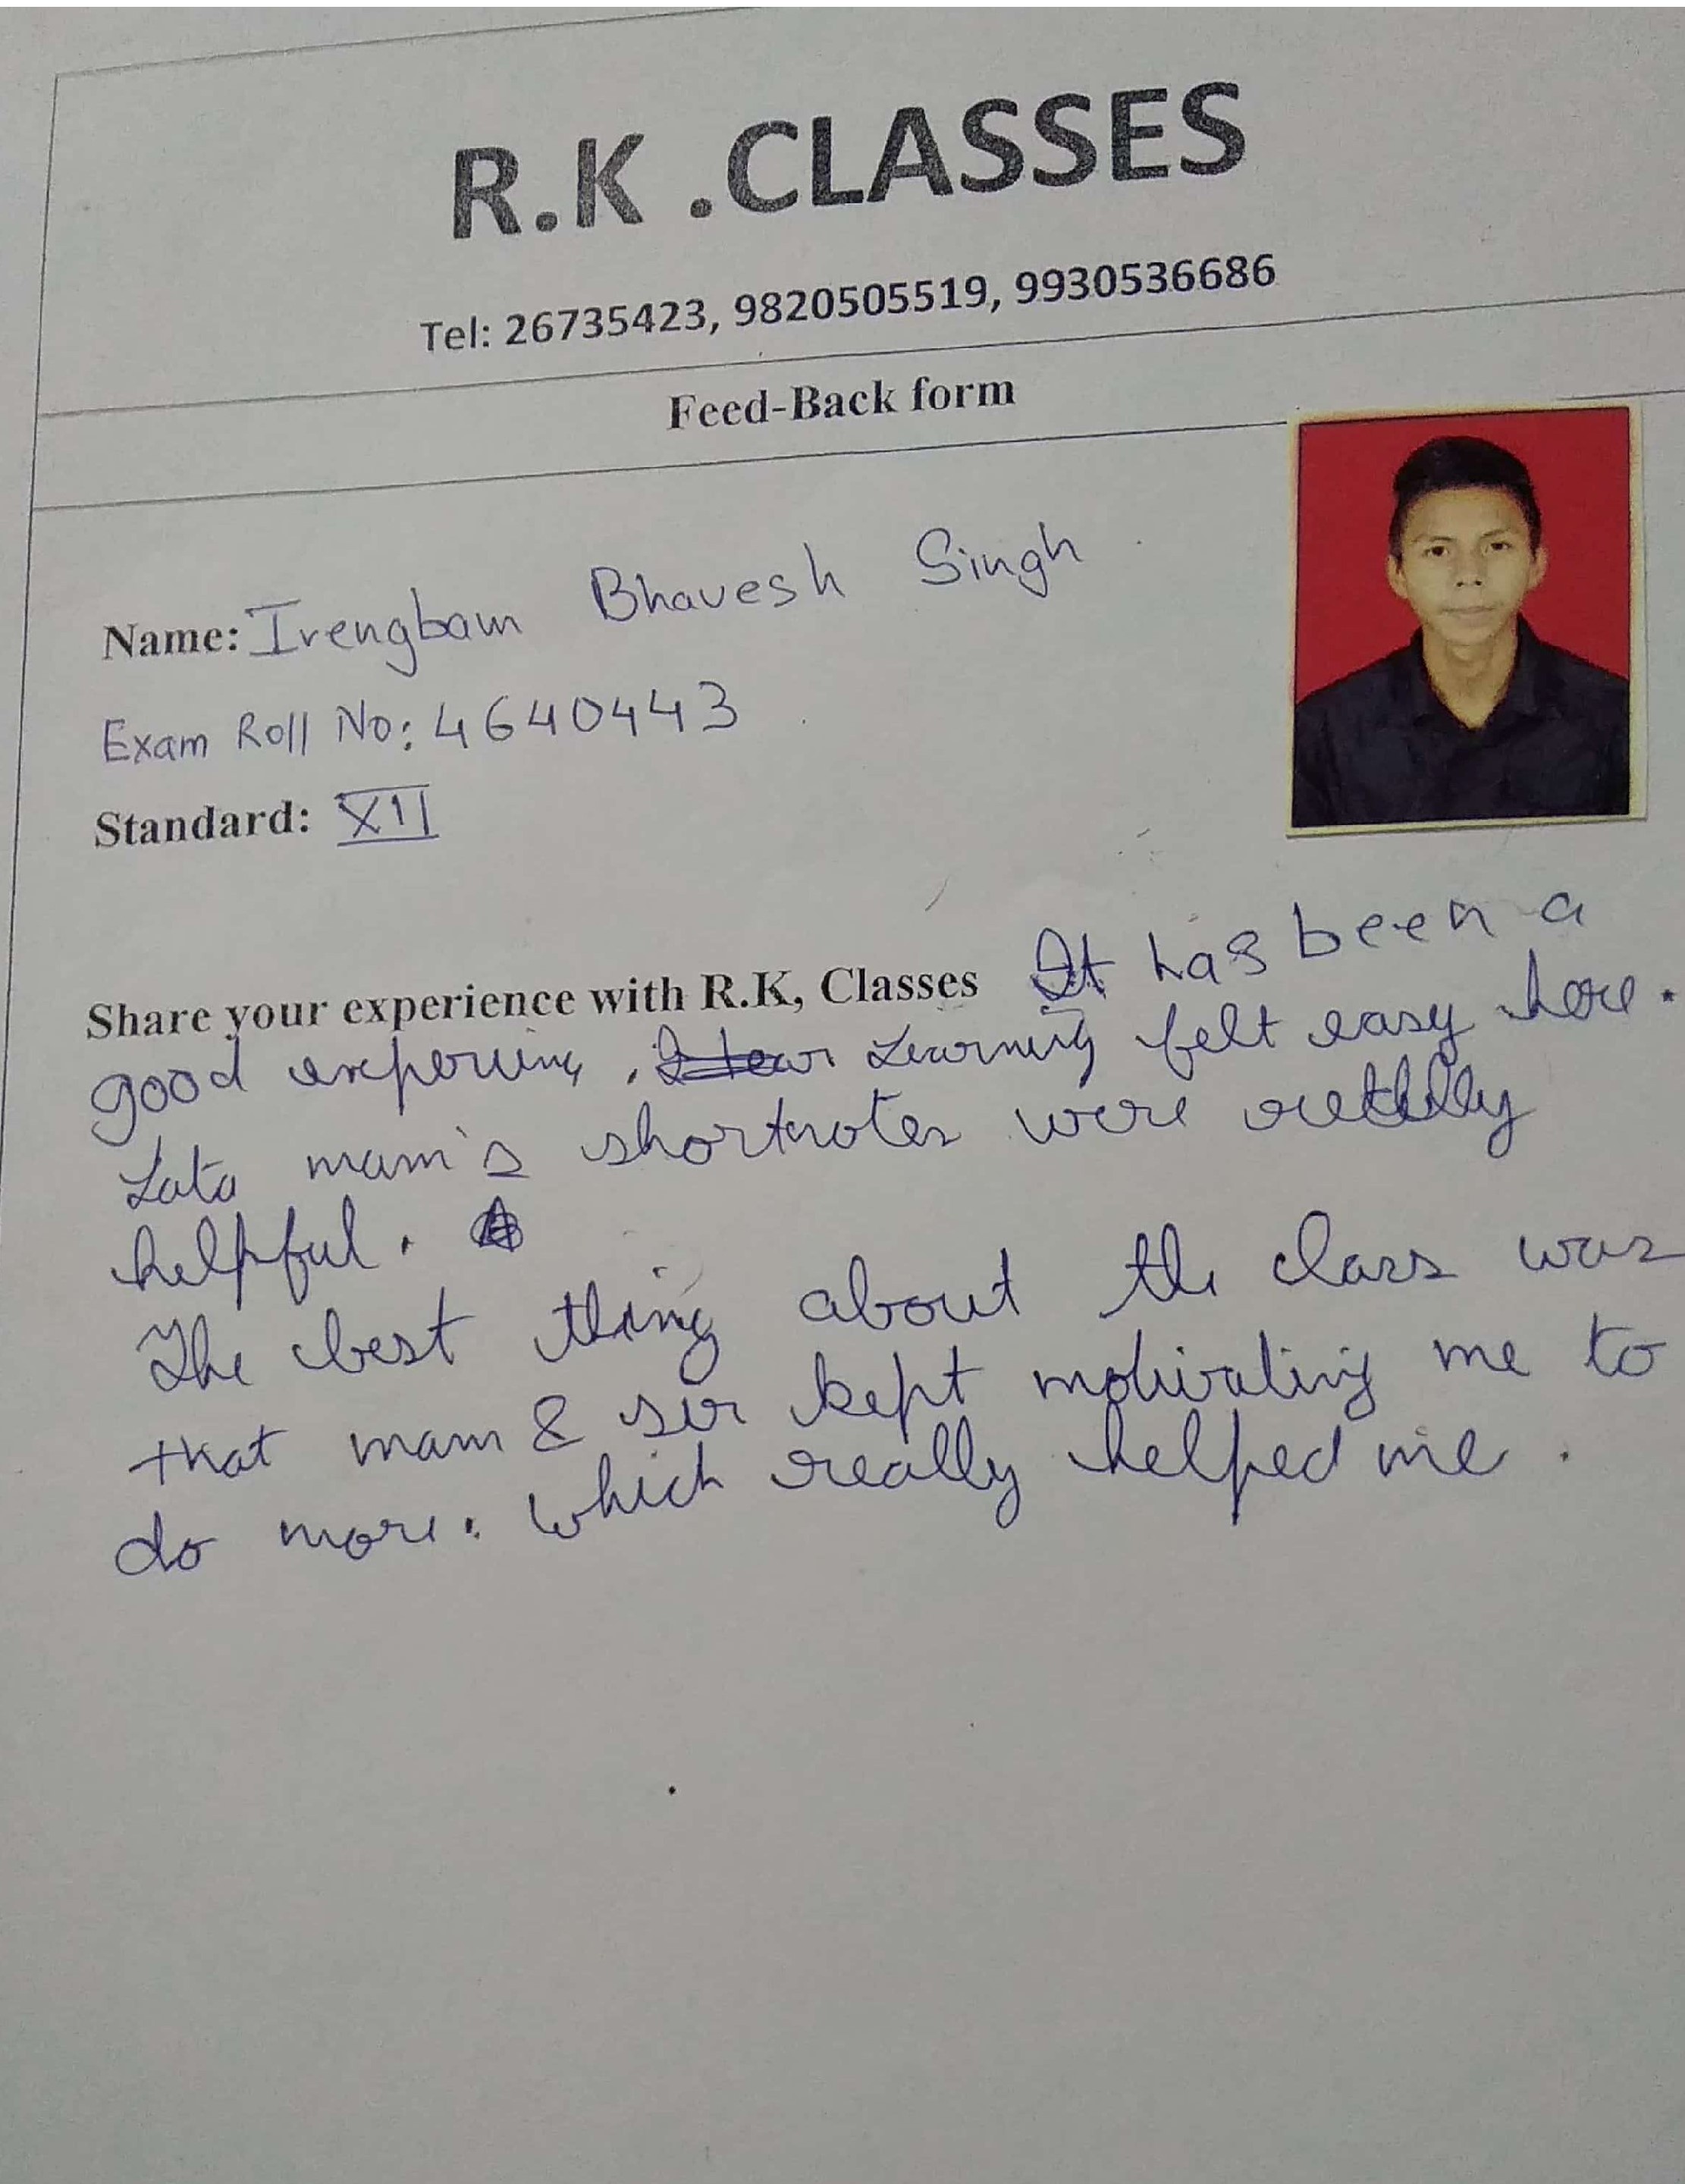 R.K .CLASSES
Tel: 26735423, 9820505519, 9930536686
Feed-Back form
Name: Irengbam Bhavesh Singh
Exam Roll No: 4640443
Standard: XII
Share your experience with R.K, Classes It has been a
good experience, Learning felt easy here.
Lata mam's shortnotes were really
helpful.
The best thing about the class was
that mam & sir kept motivating me to
do more. which really helped me.